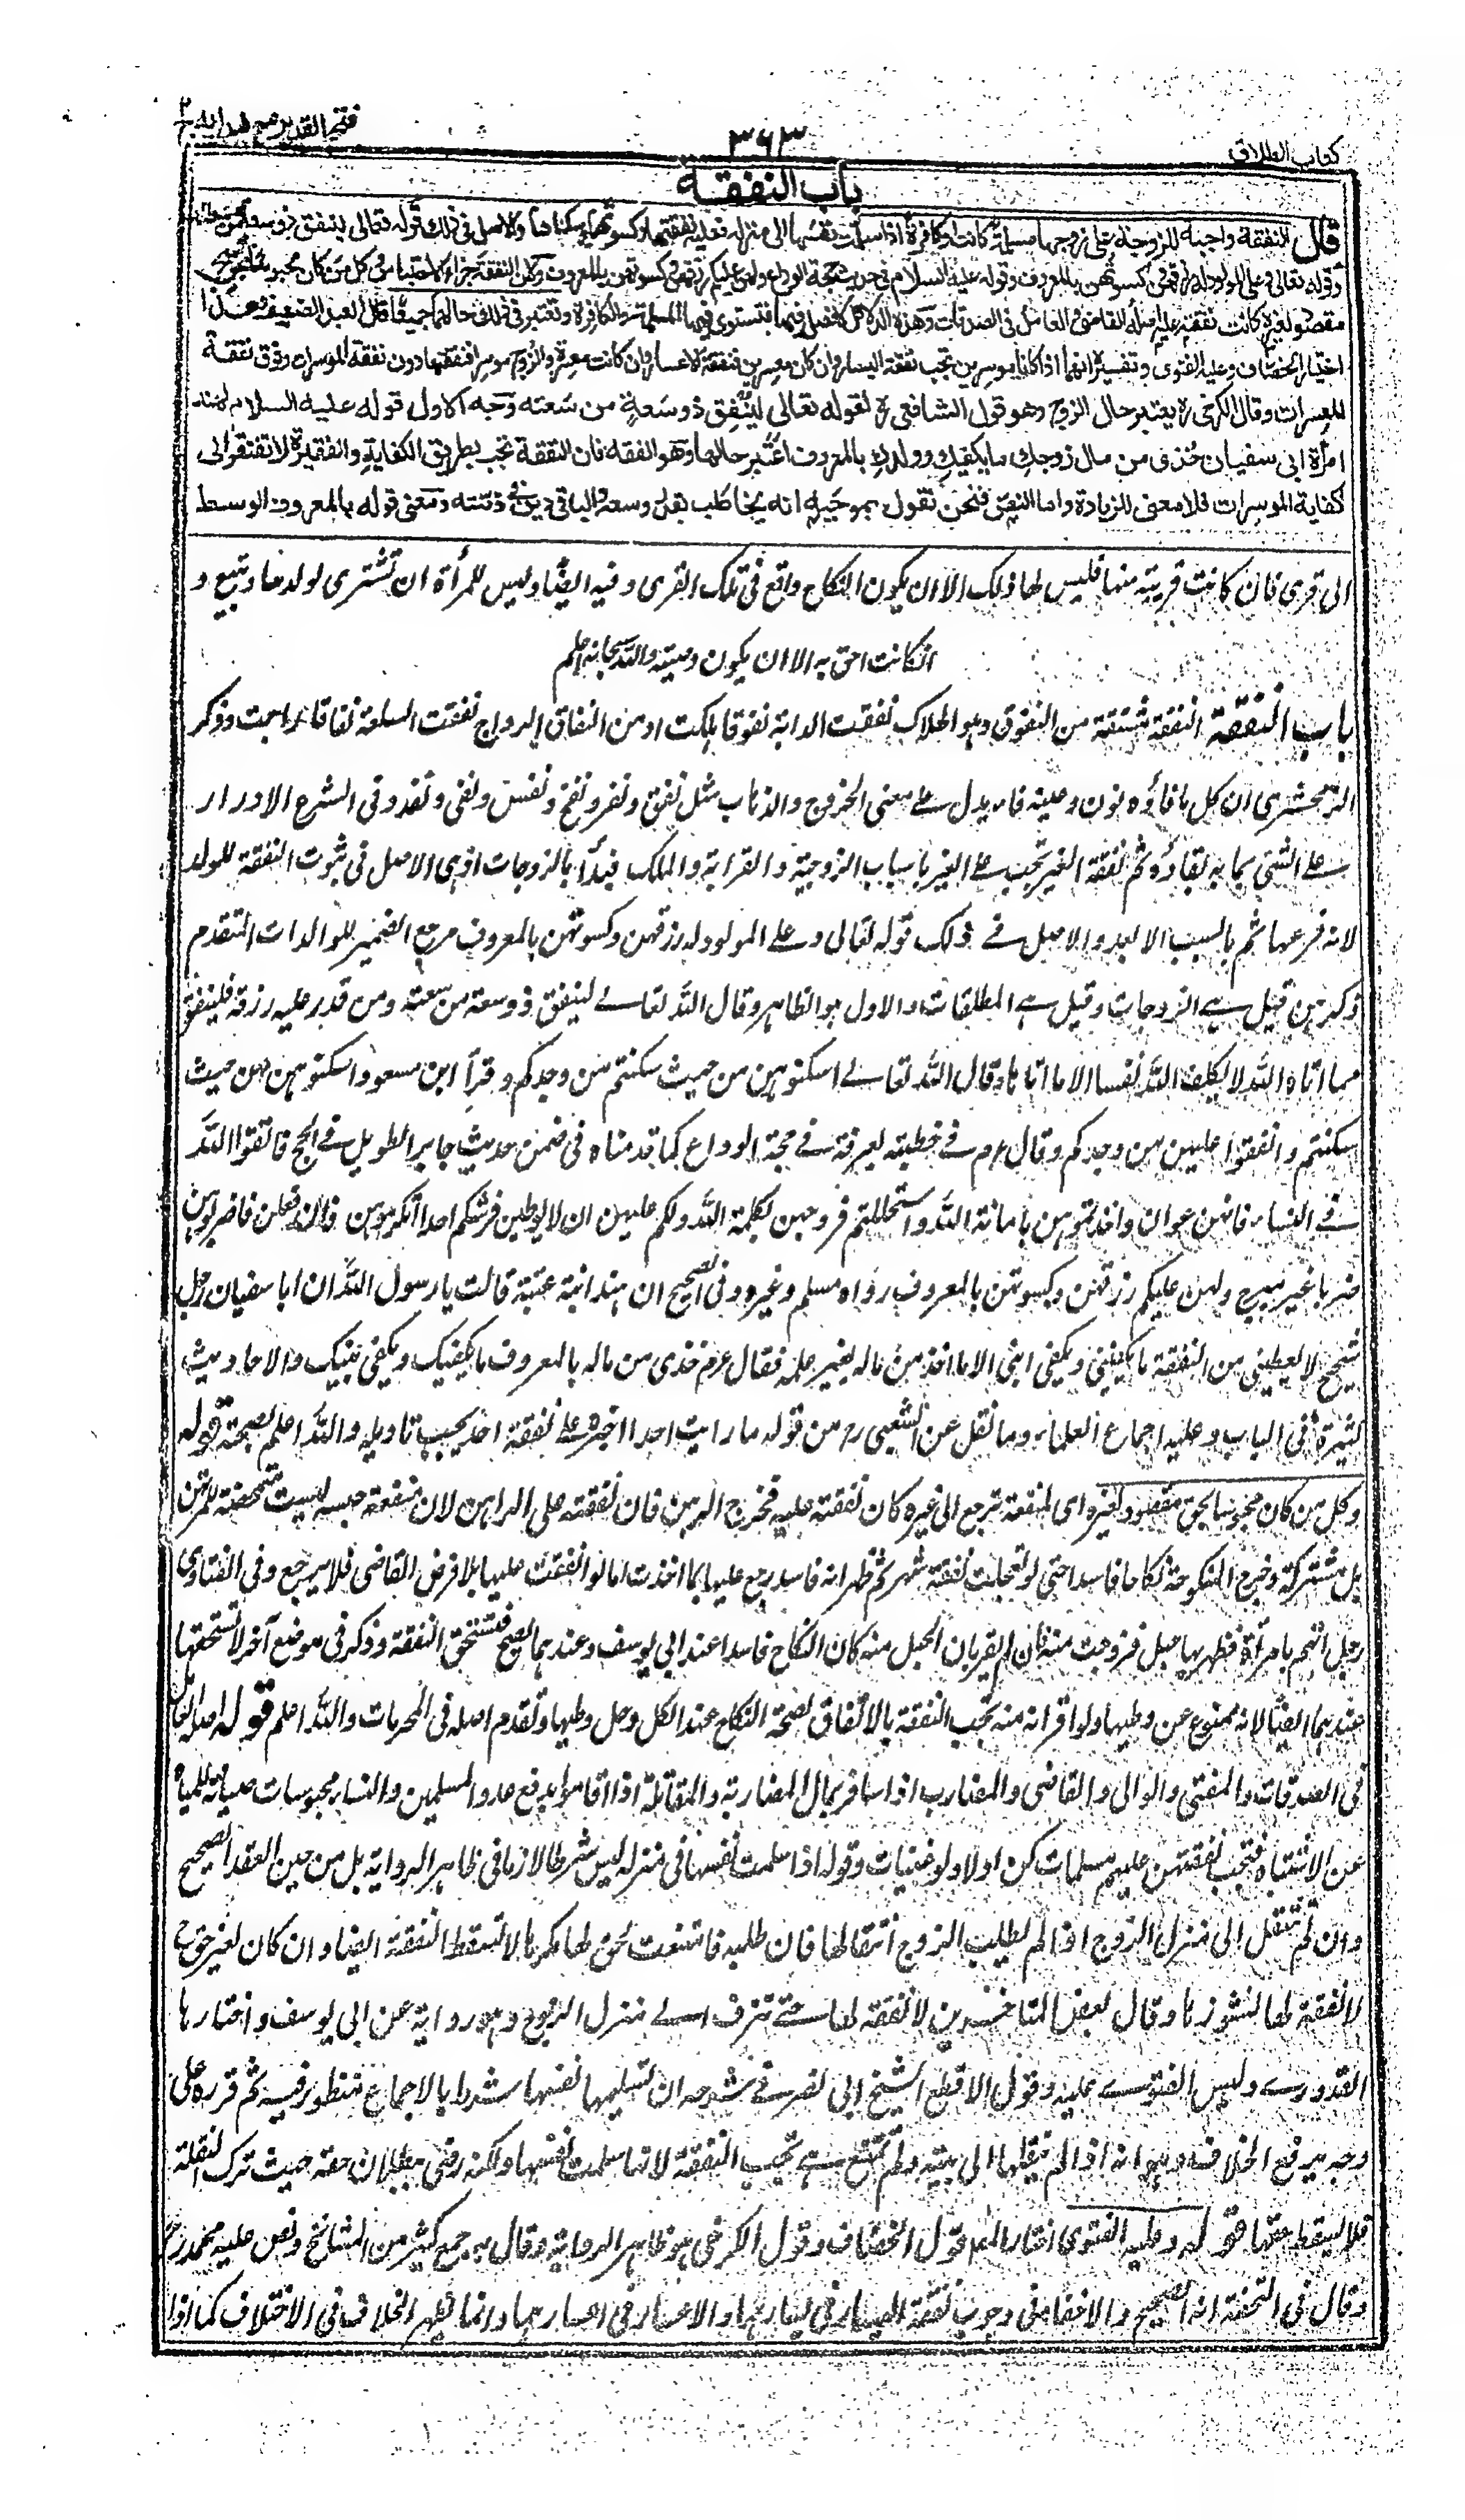 كتاب الطلاق
٣٦٣
فتح القدير مع هدايه ج ٢
باب النفقة
قال النفقة واجبة للزوجة على زوجها مسلمة كانت او كافرة اذا سلمت نفسها الى منزله فعليه نفقتها وكسوتها وسكناها والاصل في ذلك قوله تعالى لينفق ذو سعة من سعته
وقوله تعالى وعلى المولود له رزقهن وكسوتهن بالمعروف وقوله عليه السلام في حديث حجة الوداع ولهن عليكم رزقهن وكسوتهن بالمعروف ولان النفقة جزاء الاحتباس وكل من كان محبوسا بحق
مقصود لغيره كانت نفقته عليه اصله القاضي والعامل في الصدقات وهذه الدلائل لا فصل فيها فتستوي فيها المسلمة والكافرة وتعتبر في ذلك حالهما جميعا قال العبد الضعيف وهذا
اختيار الخصاف وعليه الفتوى وتفسيره انهما اذا كانا موسرين تجب نفقة اليسار وان كانا معسرين فنفقة الاعسار وان كانت معسرة والزوج موسرا فنفقتها دون نفقة الموسرات وفوق نفقة
المعسرات وقال الكرخي ره يعتبر حال الزوج وهو قول الشافعي ره لقوله تعالى لينفق ذو سعة من سعته وجه الاول قوله عليه السلام لهند
امرأة ابي سفيان خذي من مال زوجك ما يكفيك وولدك بالمعروف اعتبر حالها وهو الفقه فان النفقة تجب بطريق الكفاية والفقيرة لا تفتقر الى
كفاية الموسرات فلا معنى للزيادة واما النص فنحن نقول بموجبه انه يخاطب بقدر وسعه والباقي دين في ذمته ومعنى قوله بالمعروف الوسط
الى قرى فان كانت قريبة منها فليس لها ذلك الا ان يكون النكاح واقع في تلك القرى وفيه ايضا وليس للمرأة ان تشترى لولدها وتبيع و
انكانت احق به الا ان يكون وصيته والله سبحانه اعلم
باب النفقة النفقة مشتقة من النفوق وهو الهلاك نفقت الدابة نفوقا هلكت او من النفاق الرواج نفقت السلعة نفاقا راجت وذكر
الزمخشرى ان كل ما فاؤه نون وعينه فاء يدل على معنى الخروج والذهاب مثل نفق ونفر ونفخ ونفس ونفى ونفد وفى الشرع الادرار
على الشئ بما به بقاؤه ثم نفقة الغير تجب على الغير باسباب الزوجية والقرابة والملك فبدأ بالزوجات اذ هى الاصل فى ثبوت النفقة للولد
لانه فرعها ثم بالسبب الابعد والاصل فى ذلك قوله تعالى وعلى المولود له رزقهن وكسوتهن بالمعروف مرجع الضمير للوالدات المتقدم
ذكرهن قيل هى الزوجات وقيل هى المطلقات والاول هو الظاهر وقال الله تعالى لينفق ذو سعة من سعته ومن قدر عليه رزقه فلينفق
مما اتاه الله لا يكلف الله نفسا الا ما اتاها وقال الله تعالى اسكنوهن من حيث سكنتم من وجدكم وقرأ ابن مسعود اسكنوهن من حيث
سكنتم وانفقوا عليهن من وجدكم وقال عم فى خطبته بعرفة فى حجة الوداع كما قدمناه فى ضمن حديث جابر الطويل فى الحج فاتقوا الله
فى النساء فانهن عوان واخذتموهن بامانة الله واستحللتم فروجهن بكلمة الله ولكم عليهن ان لا يوطين فرشكم احدا تكرهونه فان فعلن فاضربوهن
ضربا غير مبرح ولهن عليكم رزقهن وكسوتهن بالمعروف رواه مسلم وغيره وفى الصحيح ان هندا ابنة عتبة قالت يا رسول الله ان ابا سفيان رجل
شحيح لا يعطينى من النفقة ما يكفينى ويكفى ابنى الا ما اخذ من ماله بغير علمه فقال عم خذى من ماله بالمعروف ما يكفيك ويكفى بنيك والاحاديث
كثيرة فى الباب وعليه اجماع العلماء وما نقل عن الشعبى رح من قوله ما رايت احدا اجبر على نفقة احد يجب تاويله والله اعلم بصحته قوله
وكل من كان محبوسا بحق مقصود لغيره اى لمنفعة ترجع الى غيره كان نفقته عليه فخرج الرهن فان نفقته على الراهن لان منفعة حبسه ليست متمحضة للمرتهن
بل مشتركة وخرج المنكوحة نكاحا فاسدا حتى لو تعجلت نفقة شهر ثم ظهر انه فاسد رجع عليها بما اخذت اما لو انفقت عليها بلا فرض القاضى فلا يرجع وفى الفتاوى
رجل اتهم بامرأة فظهر بها حبل فزوجت منه فان لم يقر بان الحبل منه كان النكاح فاسدا عند ابى يوسف وعندهما الصحيح فتستحق النفقة وذكر فى موضع آخر لا تستحقها
عندهما ايضا لانه ممنوع عن وطيها ولو اقر انه منه تجب النفقة بالاتفاق لصحة النكاح عند الكل وحل وطيها وتقدم اصله فى المحرمات والله اعلم قوله اصله العامل
فى الصدقات والمفتى والوالى والقاضى والمضارب اذا سافر بمال المضاربة والمقاتلة اذا اقاموا بدفع عدو المسلمين والنساء محبوسات صيانة للمياه
عن الاشتباه فتجب نفقتهن عليهم مسلمات كن اولا ولو غنيات وقوله اذا سلمت نفسها فى منزله ليس شرطا لازما فى ظاهر الرواية بل من حين العقد الصحيح
وان لم تنتقل الى منزل الزوج اذا لم يطلب الزوج انتقالها فان طلبه فامتنعت لحق لها كمهرها لا تسقط النفقة ايضا وان كان لغير حق
لا نفقة لها لنشوزها وقال بعض المتاخرين لا نفقة لها حتى تزف الى منزل الزوج وهو رواية عن ابى يوسف واختارها
القدورى وليس الفتوى عليه وقول الاقطع الشيخ ابى نصر فى شرحه ان تسليمها نفسها شرط بالاجماع منظور فيه ثم قرره على
وجه يرفع الخلاف وهو انه اذا لم ينقلها الى بيته ولم تمتنع هى تجب النفقة لانها سلمت نفسها ولكنه رضى ببطلان حقه حيث ترك النقلة
فلا يسقط حقها قوله وعليه الفتوى اختار المص قول الخصاف وقول الكرخى هو ظاهر الرواية وقال به جمع كثير من المشائخ ونص عليه محمد رح
وقال فى التحفة انه الصحيح والاخفاء فى وجوب نفقة اليسار فى يسارهما والاعسار فى اعسارهما وانما يظهر الخلاف فى الاختلاف كما اذا